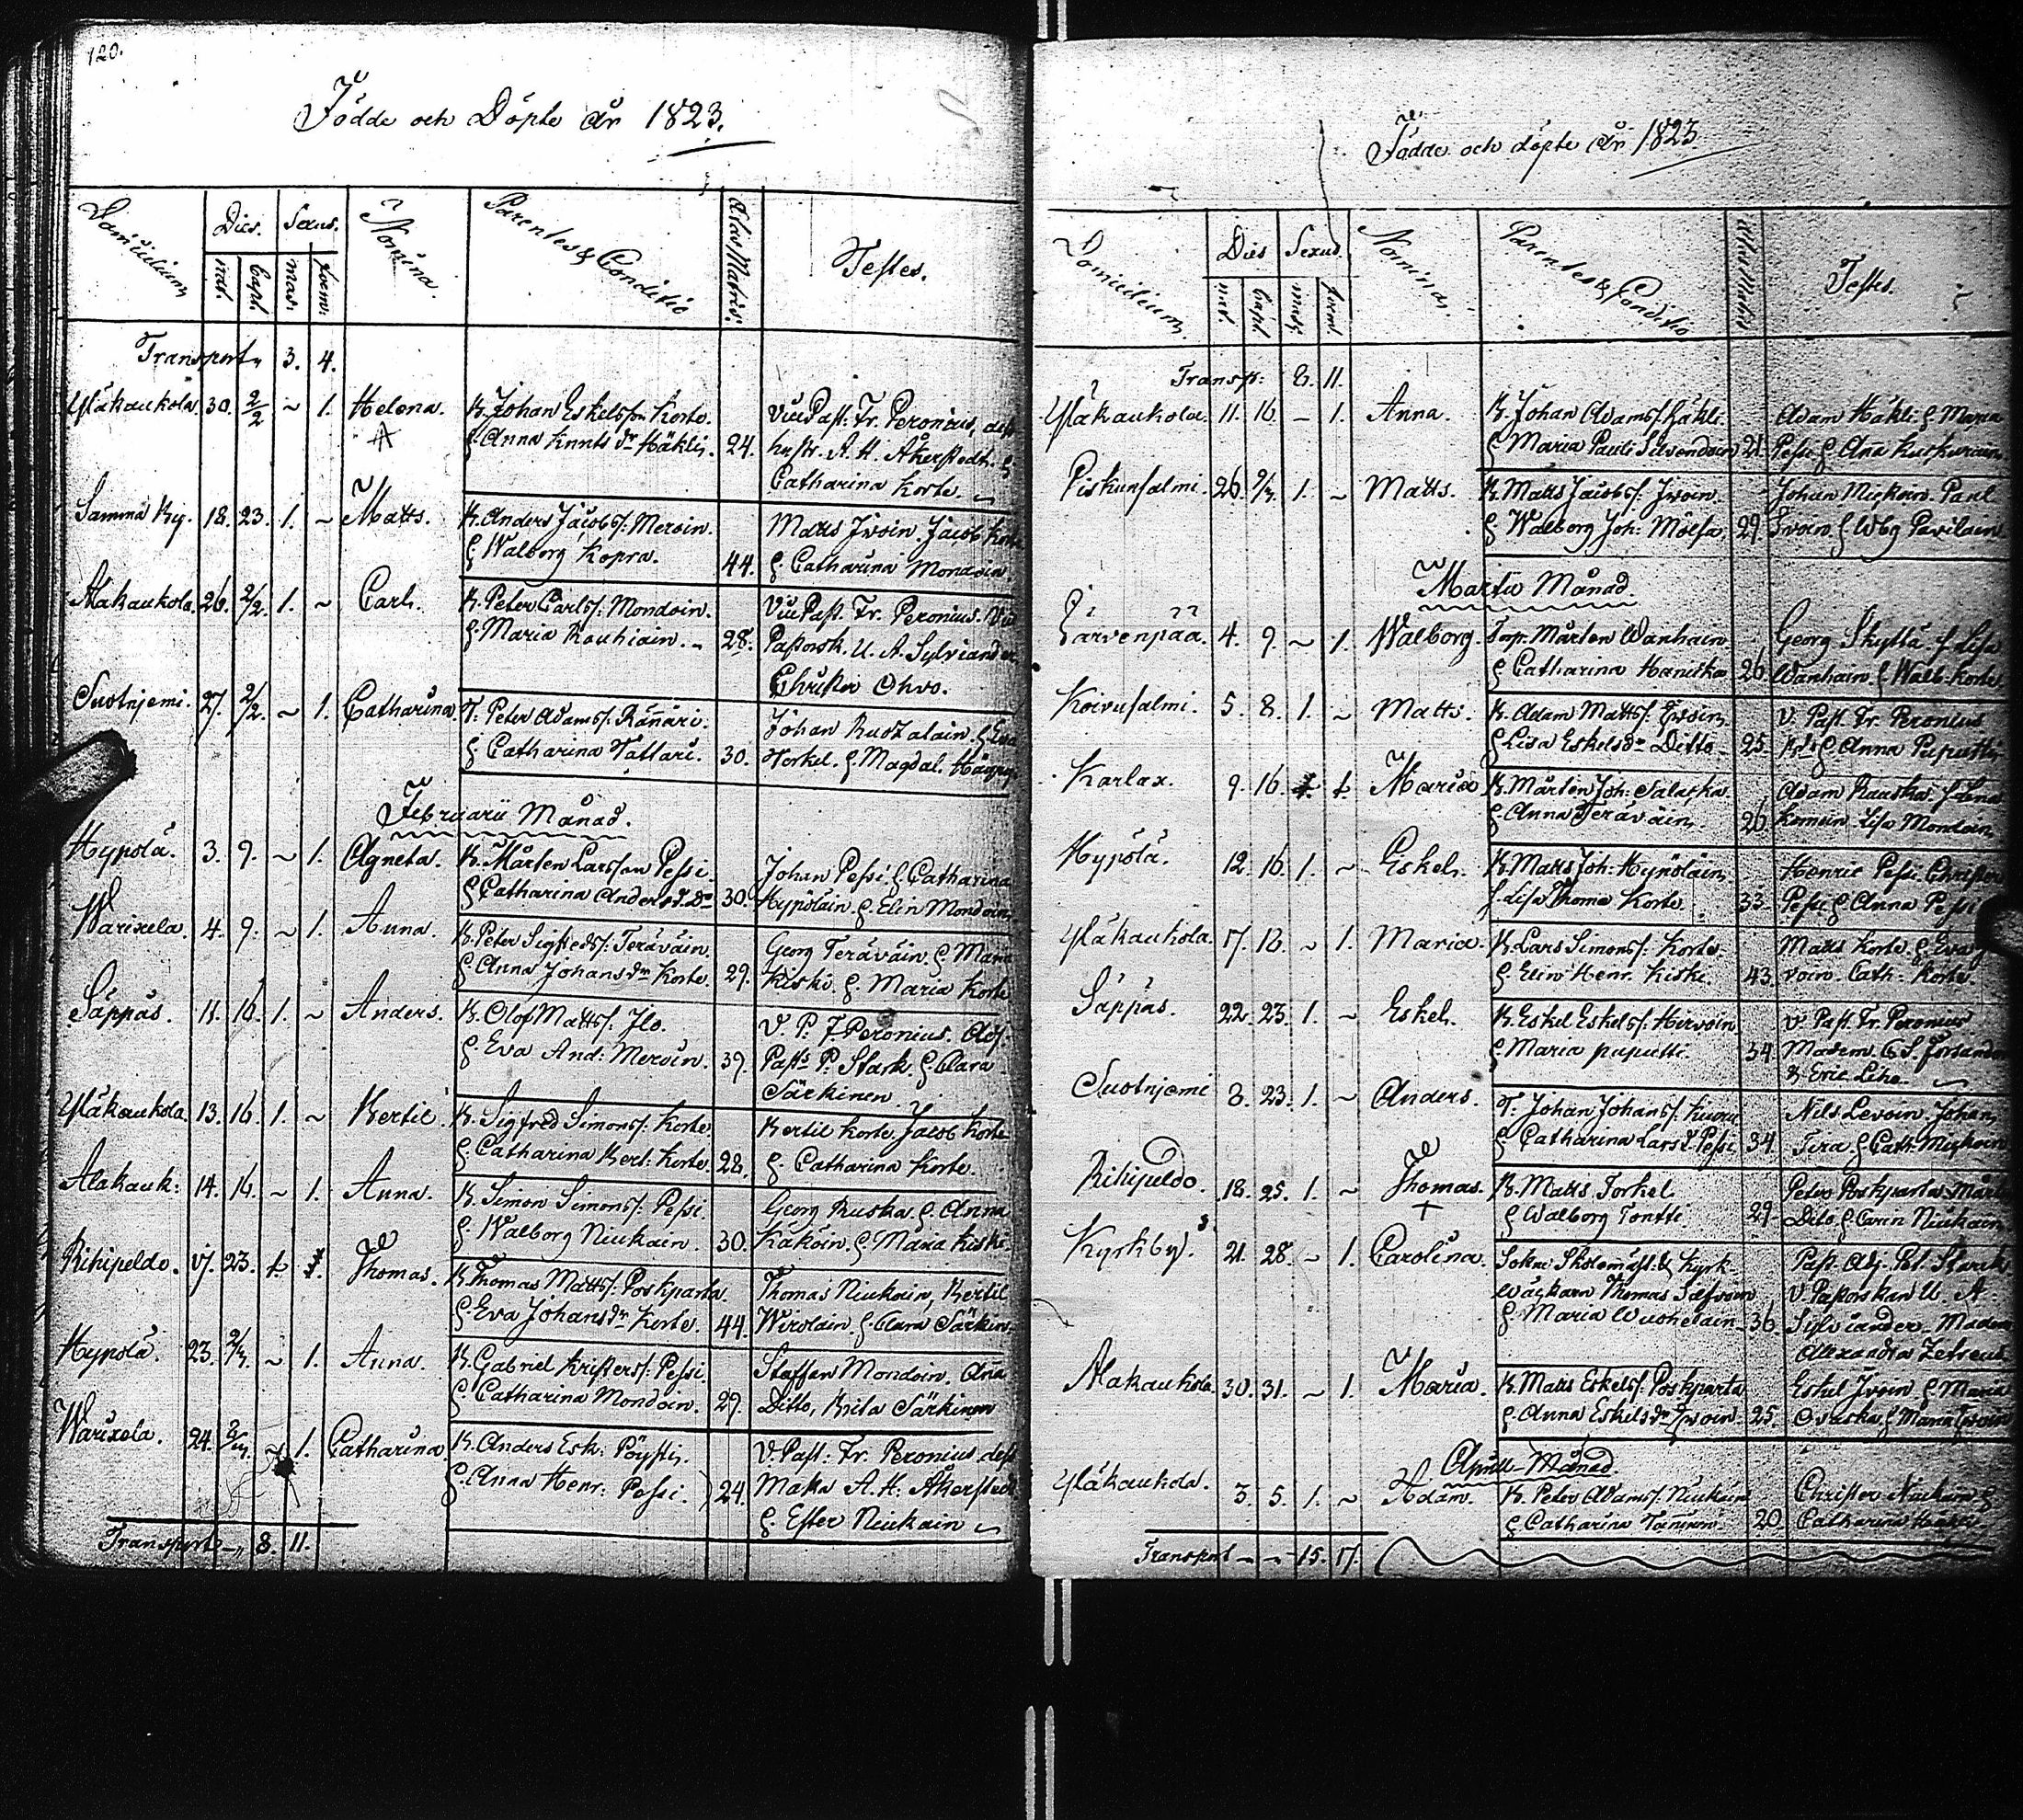 120.
Födde och Döpte år 1823.
Domicilium Dies. Sexus. Nomina. Parentes & Conditio Ætas Matris. Testes.
nat. bapt. mas. foem.
Transport 3. 4.
Yläkaukola. 30. 2/2 ~ 1. Helena. B. Johan Eskelsson Korte. Vice Past. Fr. Peronius, dess
H. Anna Knuts dr Häkli. 24. hustr. A. H. Åkerstedt. H.
Catharina Korte.
Samma By. 18. 23. 1. ~ Matts. B. Anders Jacobs: Mervin. Matts Ivoin. Jacob Korte
H. Walborg Kopra. 44. H. Catharina Mondoin.
Alakaukola. 26. 2/2. 1. ~ Carl. B. Peter Carls: Mondoin. Vice Past. Fr. Peronius. Vice
H. Maria Rouhiain. 28. Pastorsk. U. A. Sylviander
Christer Ohvo.
Suotnjemi. 27. 2/2. ~ 1. Catharina. T. Peter Adams: Ränäri. Johan Ruotzalain. H. Eva
H. Catharina Tattari. 30. Torkel. H. Magdal.
Februarii Månad.
Hypölä. 3. 9. ~ 1. Agneta. B. Mårten Larsson Pessi. Johan Pessi H. Catharina
H. Catharina Anders Dr 30. Hypöläin. H. Elin Mondoin
Warixela. 4. 9. ~ 1. Anna. B. Peter Sigfreds: Teräväin. Georg Teräväin H. Maria
H. Anna Johans dr Korte. 29. Kiski. H. Maria Korte
Säppäs. 11. 16. 1. ~ Anders. B. Olof Matts: Ilo. V. P. F. Peronius. Adj.
H. Eva And: Mervin. 39. Past. P. Stark. H. Clara
Särkinen
Yläkaukola. 13. 16. 1. ~ Bertil. B. Sigfred Simons: Korte. Bertil Korte. Jacob Korte
H. Catharina Bert: Korte. 28. H. Catharina Korte.
Alakauk: 14. 16. ~ 1. Anna. B. Simon Simons: Pessi. Georg Ruska. H. Anna
H. Walborg Niukain. 30. Käköin. H. Maria Kiski.
Rihipeldo. 17. 23. 1. Thomas. B. Thomas Matts: Poskparta. Thomas Niukain, Bertil
H. Eva Johans dr Korte. 44. Wirolain. H. Clara Särkin.
Hypölä. 23. 2/3. ~ 1. Anna. B. Gabriel Kristers: Pessi. Staffan Mondoin. Ana
H. Catharina Mondoin. 29. Ditto, Brita Särkinen
Warixela. 24. 2/3. ~ 1. Catharina. B. Anders Esk: Pöysti. V. Past: Fr. Peronius dess
H. Anna Henr: Pessi. 24. Maka A. H. Åkerstedt
H. Ester Niukain
Transport 8. 11.
Födde och döpte år 1823.
Domicilium Dies Sexus Nomina. Parentes & Conditio Ætas Matris Testes.
nat. bapt. mas. foem.
Transp: 8. 11.
Yläkaukola. 11. 16. ~ 1. Anna. B. Johan Adams: Häkli. Adam Häkli H. Maria
H. Maria Pauls Silvendoin 21. Pessi H. Ana
Piskunsalmi. 26. 2/3. 1. ~ Matts. B. Matts Jacobs: Ivoin. Johan Miskoin. Paul
H. Walborg Joh: Mölsä. 29. Ivoin. H. Wbg Pavilain.
Martii Månad.
Järvenpää. 4. 9. ~ 1. Walborg. Mårten Wanhain. Georg Skyttä. H. Lisa
H. Catharina 26. Wanhain. H. Walb. Korte
Koivusalmi. 5. 8. 1. ~ Matts. B. Adam Matts: Ivoin V. Past. Fr. Peronius
H. Lisa Eskels dr Ditto 25. H. Anna Puputti
Karlax. 9. 16. 1. Maria B. Mårten Joh: Salaska. Adam Rauska. H. Lena
H. Anna Teräväin. 26. Lisa Mondoin
Hypölä. 12. 16. 1. ~ Eskel. B. Matts Joh: Hypöläin Henric Pessi. Christer
H. Lisa Thoma Korte 33. Pessi H. Anna Pessi
Yläkaukola. 17. 18. ~ 1. Maria. B. Lars Simons: Korte. Matts Korte. H. Eva
H. Elin Henr. Kiski. 43. voin. Cath: Korte.
Säppäs. 22. 23. 1. ~ Eskel. B. Eskel Eskels: Hervoin V. Past. Fr. Peronius
H. Maria puputti. 34. Madem.
& Eric Liho.
Suotnjemi 8. 23. 1. ~ Anders. T. Johan Johans: Kuoru Nils Levoin. Johan
H. Catharina Lars d. Pessi 34. Tera. H. Cath: Miskoin
Rihipeldo. 18. 25. 1. ~ Thomas. B. Matts Torkel. Peter Poskparta. Mårten
H. Walborg Tontti. 29. Dito. H. Carin Niukain
Kyrkby. 21. 28. ~ 1. Carolina. Sokne Skolemäst. & Kyrk- Past. Adj. Pet. Starck
wäckarn Thomas V. Pastorskan U. A.
H. Maria Wuohelain. 36. Sylviander. Madem
Alexandra
Alakaukola 30. 31. ~ 1. Maria. B. Matts Eskels: Poskparta Eskel Ivoin H. Maria
H. Anna Eskels dr Ivoin. 25. Ovaska. H. Maria Ivoin
Aprill Månad.
Yläkaukola. 3. 5. 1. ~ Adam. B. Peter Adams: Niukain Christer Niukain H.
H. Catharina 20. Catharina
Transport 15. 17.